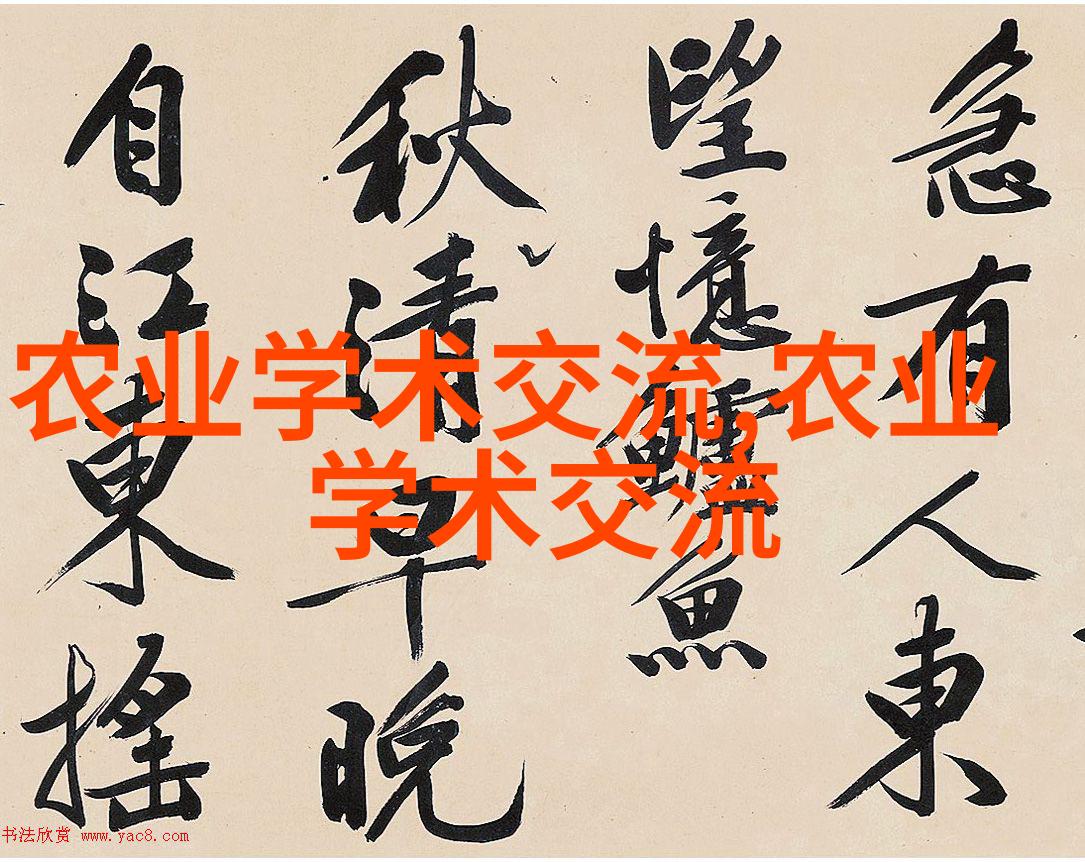 农业学术交流,农业
学术交流
急有人東
望憶鱸魚
秋清早晚
自江東搖
书法欣赏 www.yac8.com